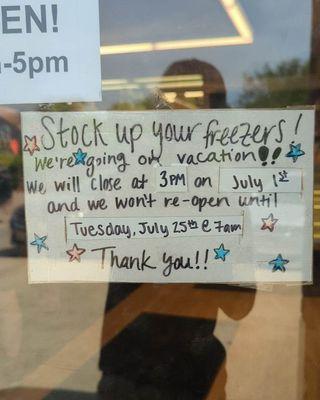 EN!
-5pm
Stock up your freezers!
We're going on vacation!!
We will close at 3PM on July 1st
and we won't re-open until
Tuesday, July 25th @ 7am
Thank you!!